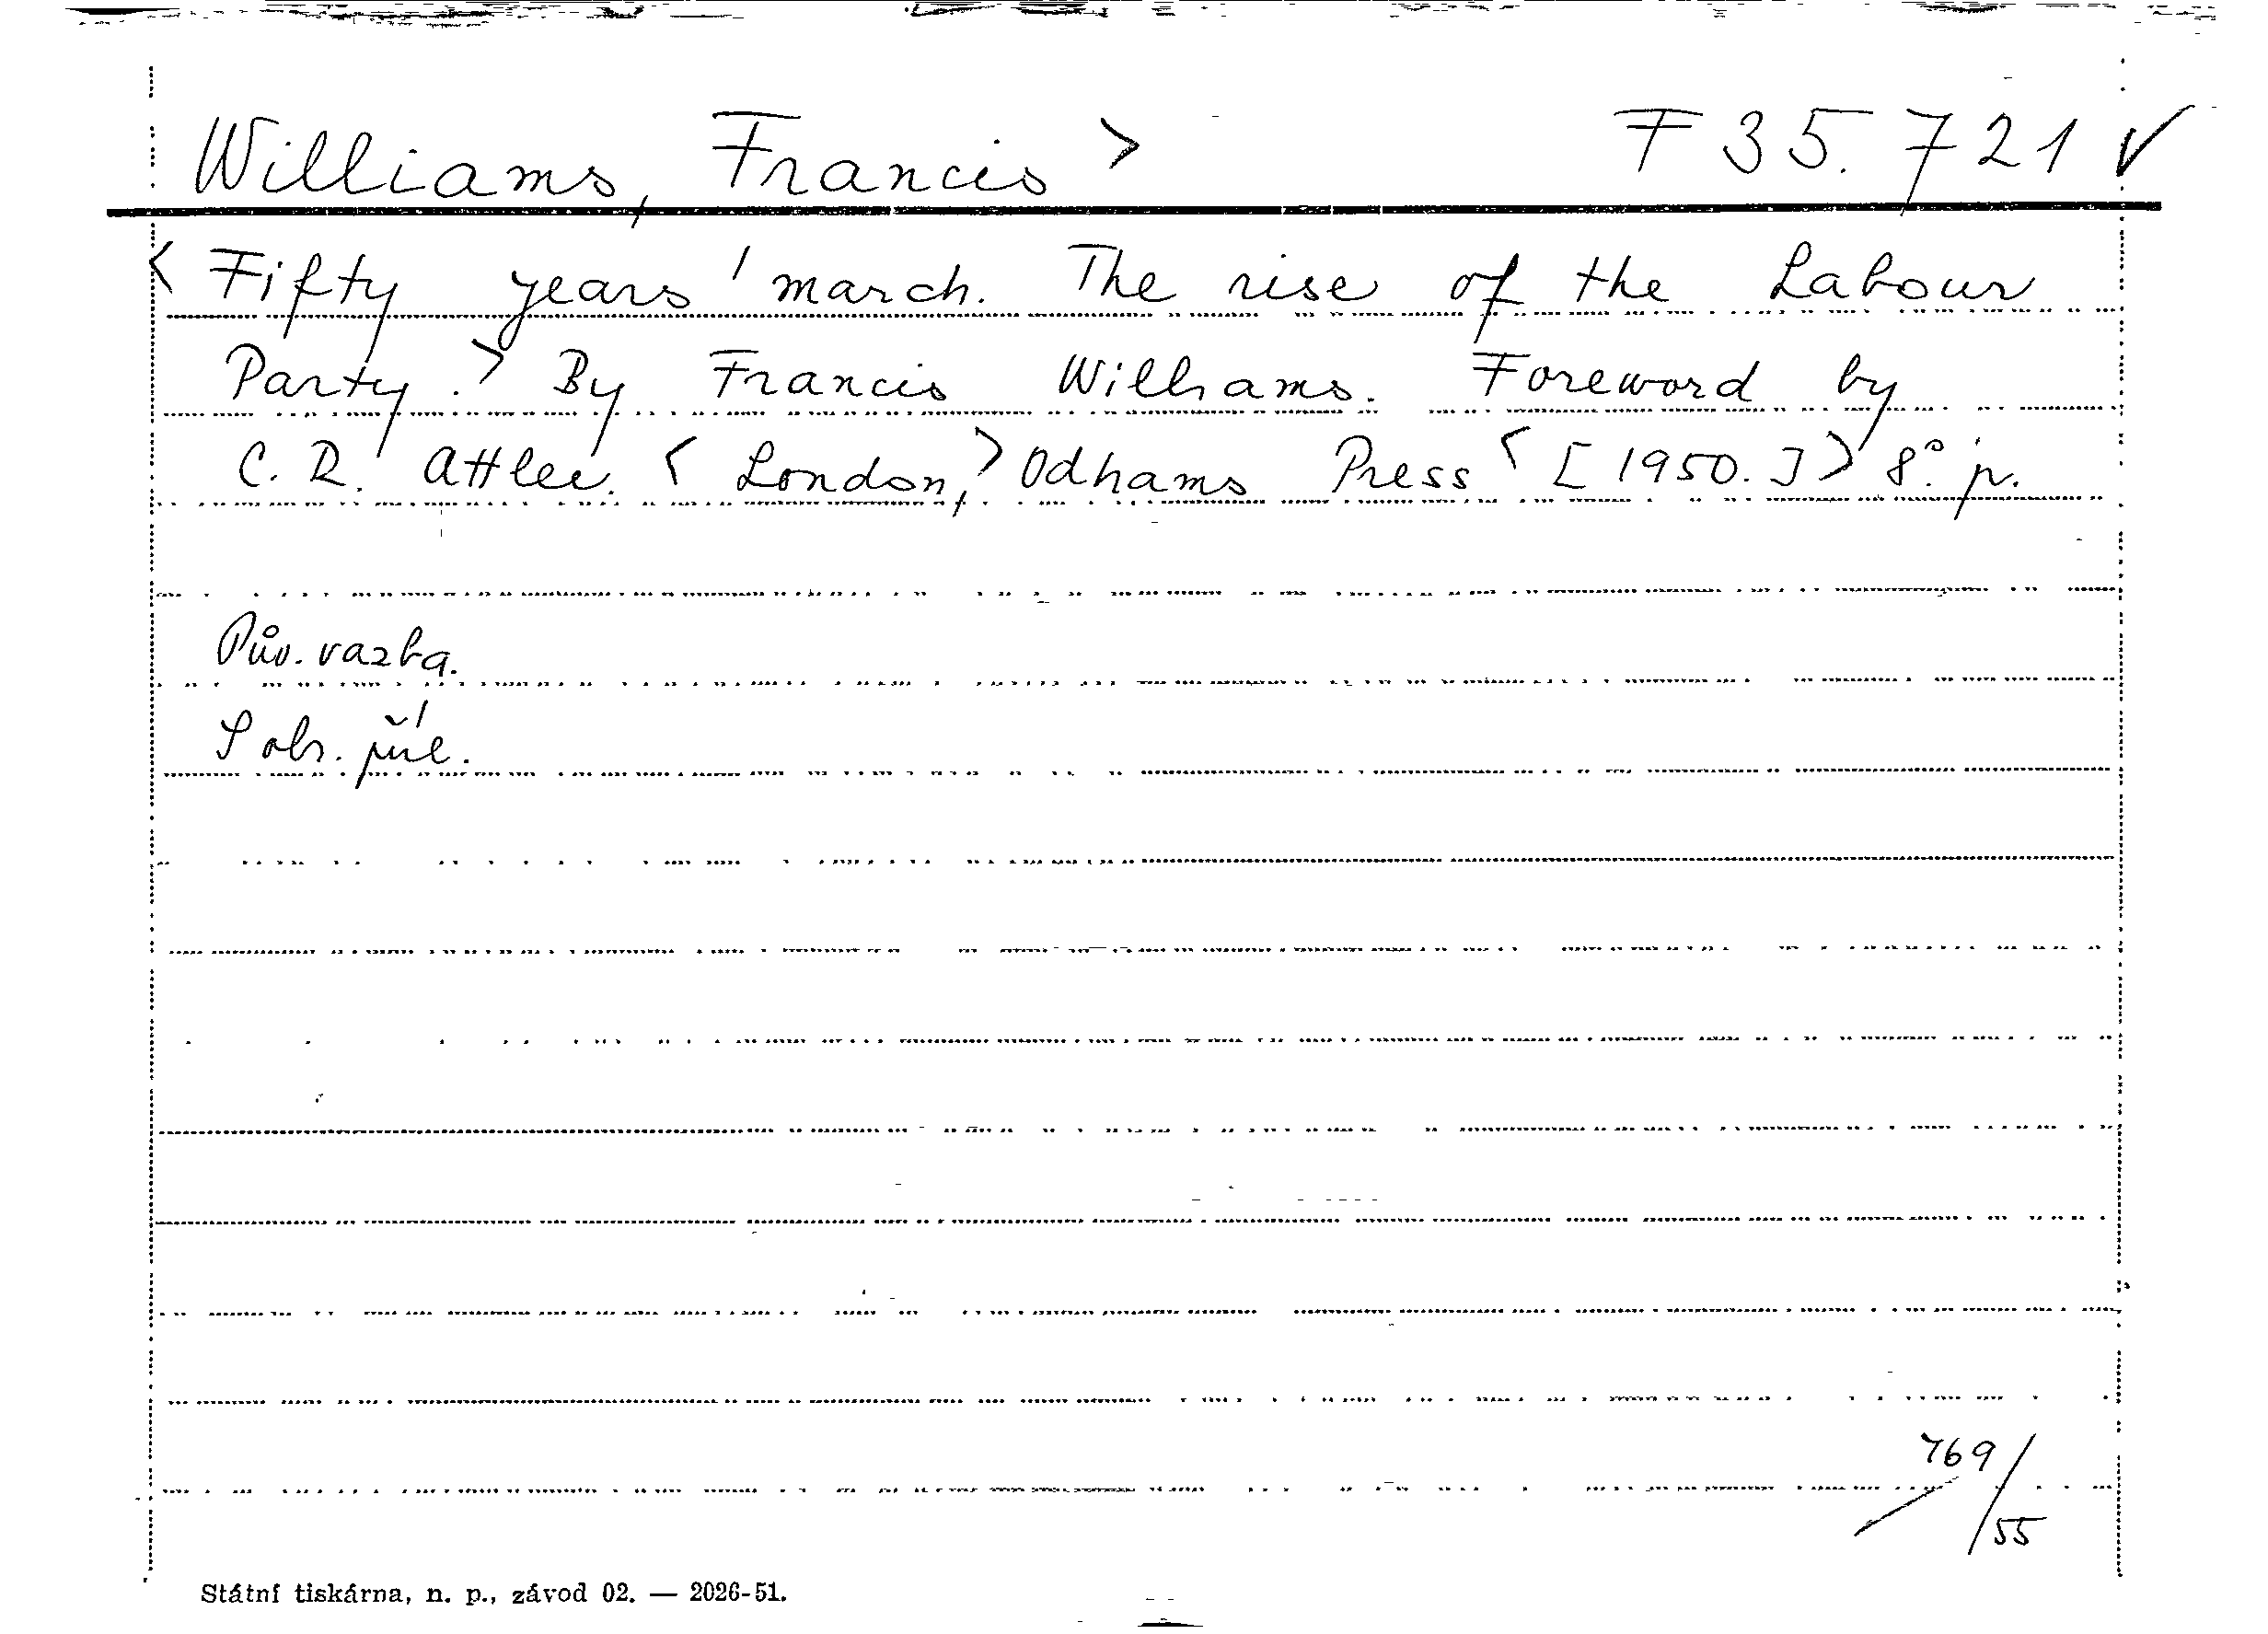 Williams, Francis > F 35.721 ✓
< Fifty years' march. The rise of the Labour
Party. > By Francis Williams. Foreword by
C. R. Attlee. < London, > Odhams Press < [1950.] > 8°. p.
Pův. vazba.
S obr. příl.
769/55
Státní tiskárna, n. p., závod 02. — 2026-51.